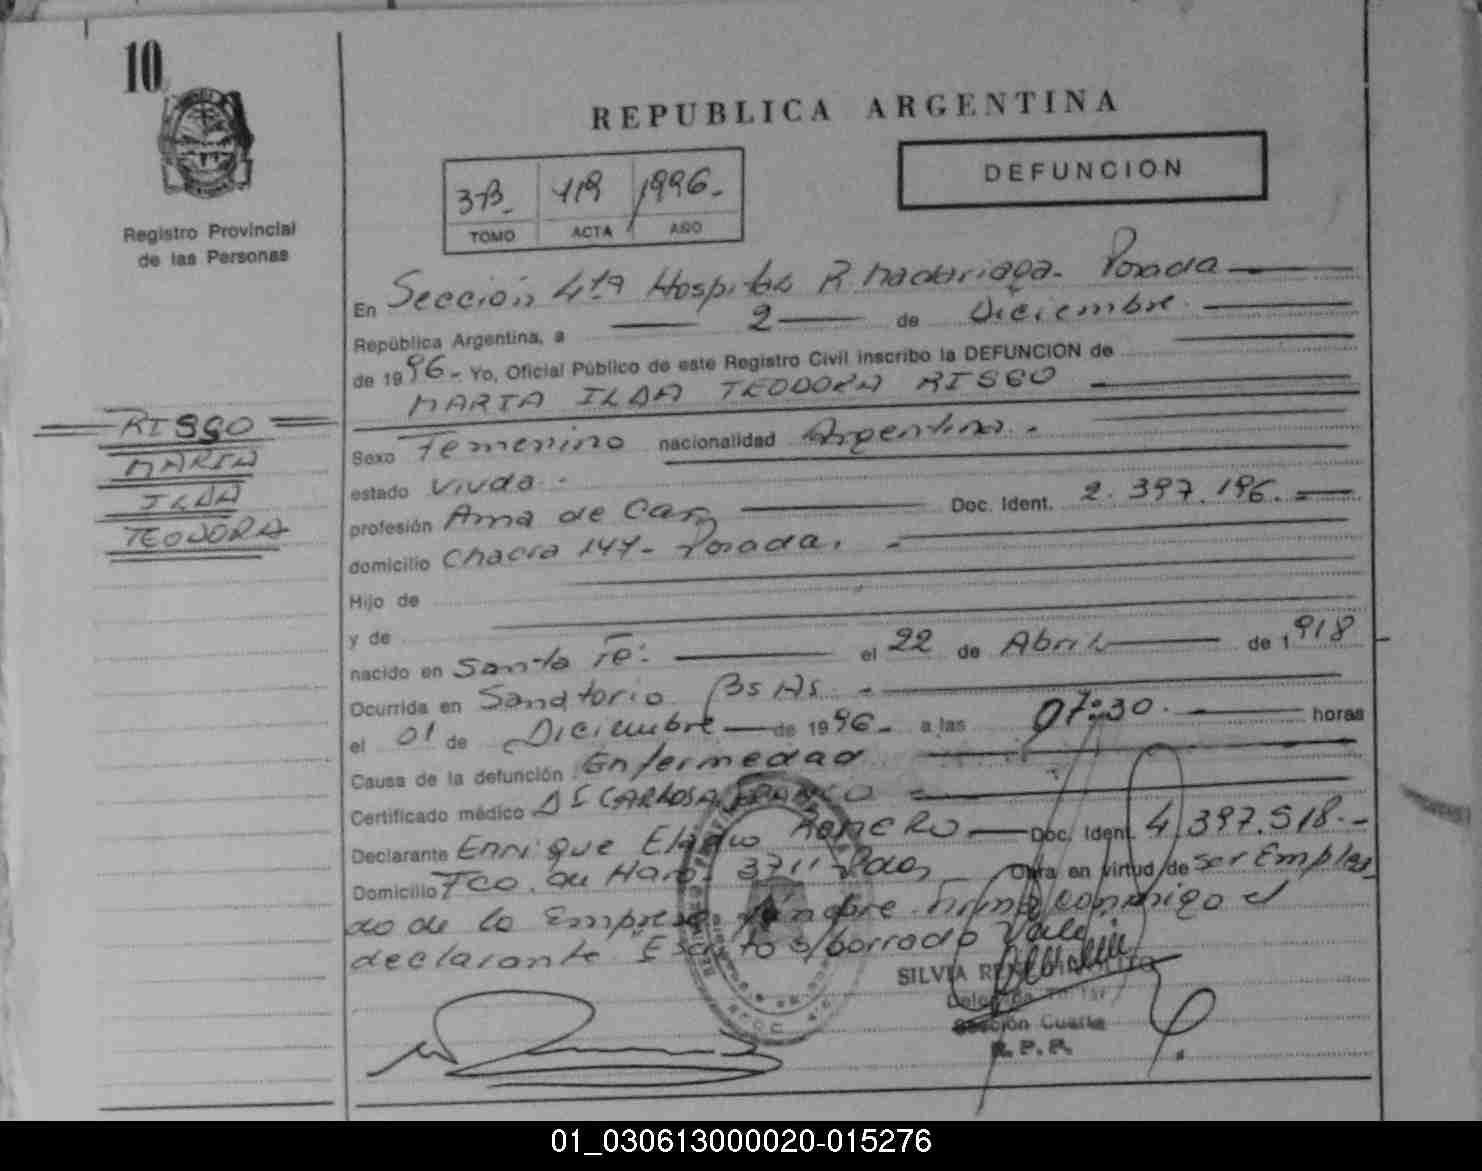 10
REPUBLICA ARGENTINA
DEFUNCION
3B 419 1996.-
TOMO ACTA AÑO
Registro Provincial
de las Personas
En Sección 4ta Hospital R. Madariaga. Posada
República Argentina, a 2 de Diciembre
de 1996.- Yo, Oficial Público de este Registro Civil inscribo la DEFUNCION de
MARIA ILDA TEODORA RISSO
RISSO
MARIA
ILDA
TEODORA
Sexo Femenino nacionalidad Argentina.-
estado Viuda.-
profesión Ama de Casa Doc. Ident. 2.397.196.
domicilio Chacra 147- Posada.
Hijo de
y de
nacido en Santa Fe. el 22 de Abril de 1918
Ocurrida en Sanatorio Bs As.
el 01 de Diciembre de 1996.- a las 07:30. horas
Causa de la defunción Enfermedad
Certificado médico
Declarante Enrique Eladio ROMERO Doc. Ident. 4.397.518.-
Domicilio Fco. de Haro 3711 Pdas Obra en virtud de ser Emplea
do de la Empresa fúnebre. Firma conmigo el
declarante. Escrito s/borrado Vale
SILVIA
Sección Cuarta
R.P.P.
01_030613000020-015276